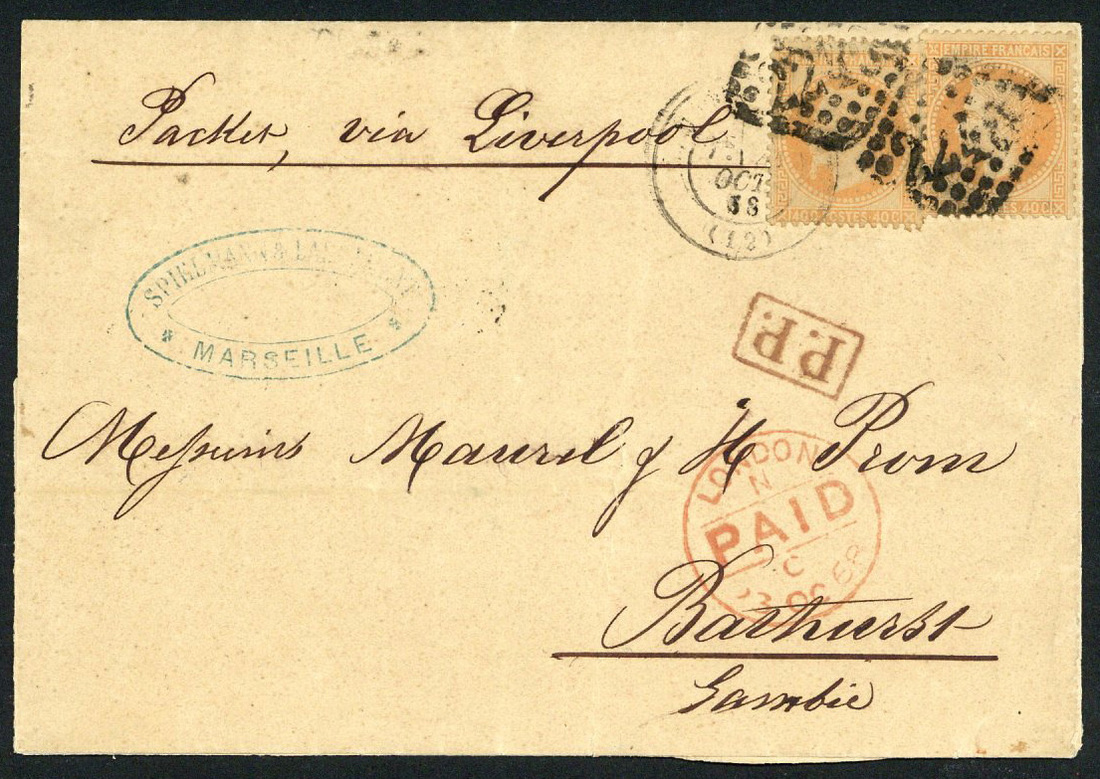 Packet, via Liverpool
OCT.
68
(12)
EMPIRE FRANÇAIS
40C POSTES. 40C
POSTES. 40C
SPIELMANN &
* MARSEILLE *
P.P.
Messieurs Maurel & H Prom
LONDON
N
PAID
C
23 OC 68
Bathurst
Gambie